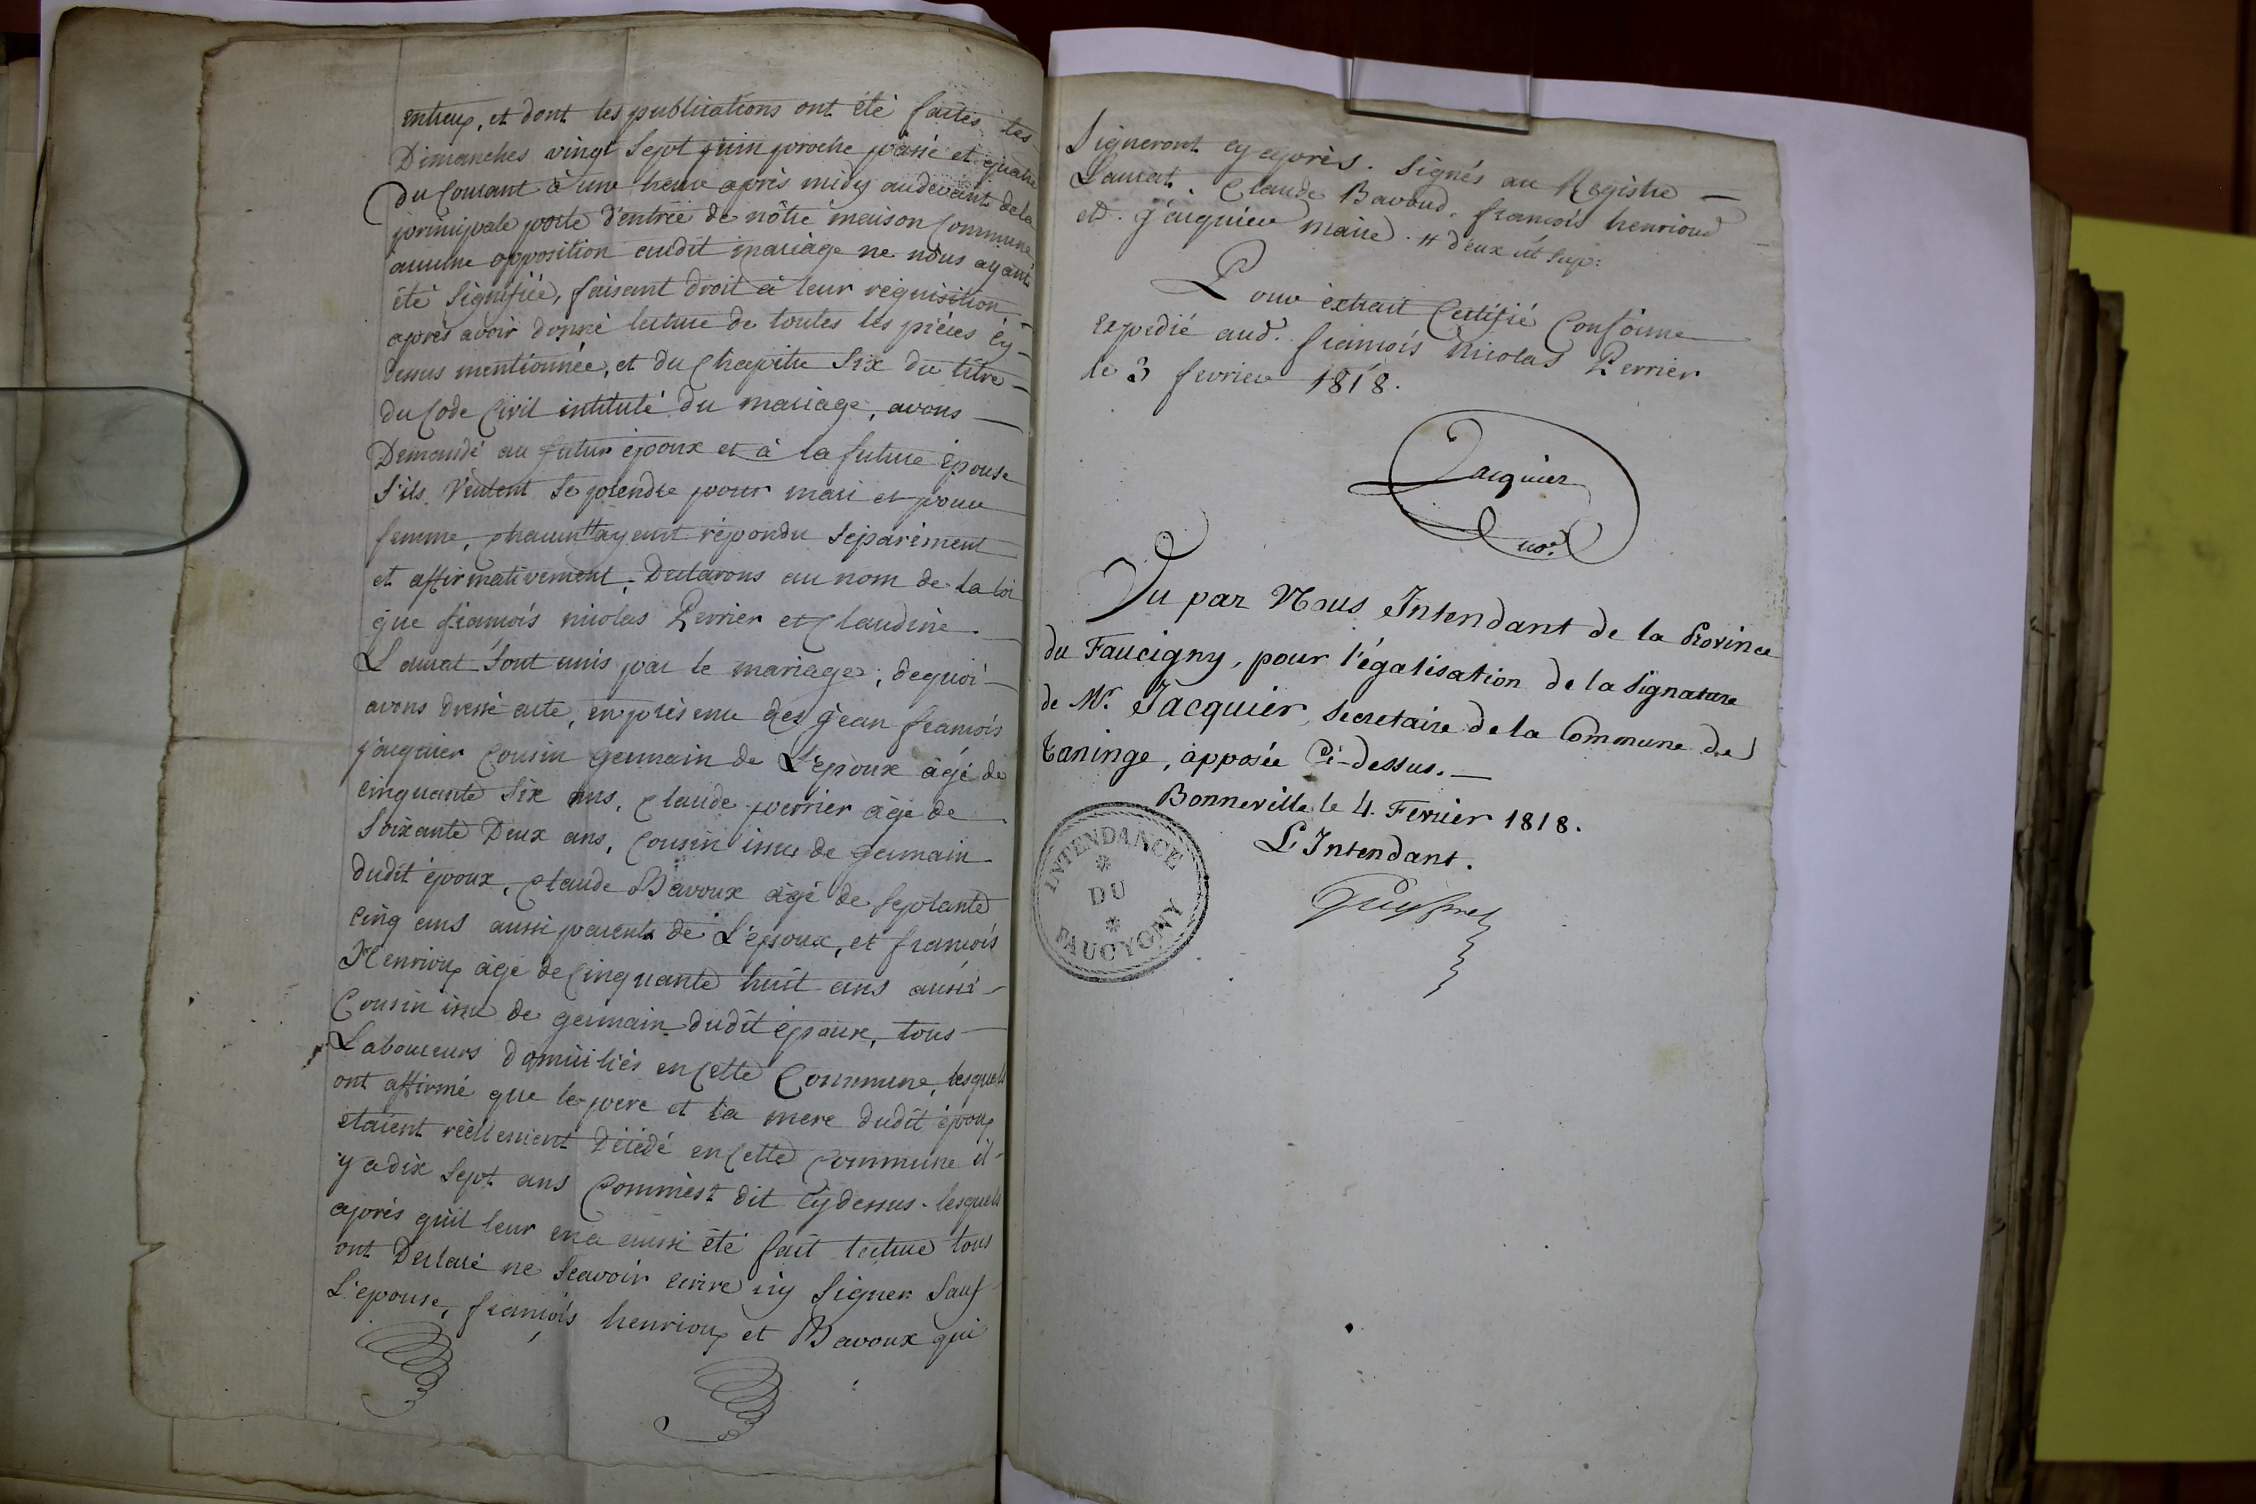 entreux, et dont les publications ont été faites les
Dimanches vingt Sept juin proche passé et quatre
du Courant à une heure après midy audevant de la
principale porte d'entrée de nôtre maison Commune
aucune opposition audit mariage ne nous ayant
été Signifiée, faisant droit à leur requisition
après avoir donné lecture de toutes les pièces cy-
dessus mentionnée, et du Chapitre Six du titre
du Code Civil intitulé du mariage, avons
Demandé au futur époux et à la future Epouse
S'ils Veulent Se prendre pour mari et pour
femme, chacun # ayant répondu Séparément
et affirmativement, Declarons au nom de la loi
que francois nicolas Perrier et Claudine
Laurat Sont unis par le mariage; dequoi
avons dressé acte, en présence des jean francois
jacquier Cousin germain de L'époux âgé de
cinquante Six ans, Claude perrier âgé de
Soixante Deux ans, Cousin issus de germain
dudit époux, Claude Bavoux âgé de Septante
cinq ans aussi parent de L'époux, et francois
Henrioux âgé de Cinquante huit ans aussi
Cousin issu de germain dudit époux, tous
Laboureurs domiciliés en Cette Commune, lesquels
ont affirmé que le pere et la mere dudit époux
étaient réellement Décédé en Cette Commune il
y a dix Sept ans Comme est dit cy dessus. lesquels
après qu'il leur en a aussi été fait lecture tous
ont Declaré ne Scavoir ecrire ny Signer Sauf
L'epouse, francois henrioux et Bavoux qui
Signeront cy après. Signés au Registre
Laurat. Claude Bavoud. francois henrioud
et. jacquier maire. # d'eux ut Sup:
Pour extrait Certifié Conforme
Expedié aud. francois Nicolas Perrier
le 3 fevrier 1818.
Jacquier
Vu par Nous Intendant de la Province
du Faucigny, pour l'égalisation de la Signature
de Mr. Jacquier, Secretaire de la Commune de
Taninge, apposée Ci-dessus.
Bonneville le 4. Fevrier 1818.
L'Intendant.
INTENDANCE
DU
FAUCYGNY